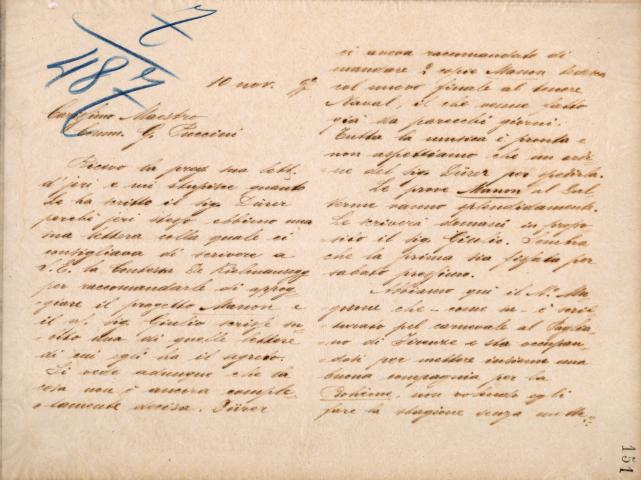 7/7
487
10 nov. 97
Carissimo Maestro
Comm. G. Puccini
Ricevo la preg. sua lett.
d'jeri e mi stupisce quanto
Le ha scritto il sig. Dürer
perchè jeri stesso ebbimo una
sua lettera colla quale ci
consigliava di scrivere a
S. E. la Contessa de Kielmansegg
per raccomandarle di appog-
giare il progetto Manon e
il n/. sig. Giulio scrisse su-
bito una di quelle lettere
di cui egli ha il segreto.
Si vede adunque che la
cosa non è ancora comple-
tamente decisa. Dürer
ci aveva raccomandato di
mandare 2 copie Manon tedesca
col nuovo finale al tenore
Naval, il che venne fatto
già da parecchi giorni.
Tutta la musica è pronta e
non aspettiamo che un ordi-
ne del sig. Dürer per spedirla.
Le prove Manon al Dal
Verme vanno splendidamente.
Le scriverà domani in propo-
sito il sig. Giulio. Sembra
che la prima sia fissata per
sabato prossimo.
Abbiamo qui il M.º Ma
gnone che - come sa - è scrit-
turato pel carnevale al Paglia-
no di Firenze e sta occupan-
dosi per mettere insieme una
buona compagnia per la
Bohème, non volendo egli
fare la stagione senza
151